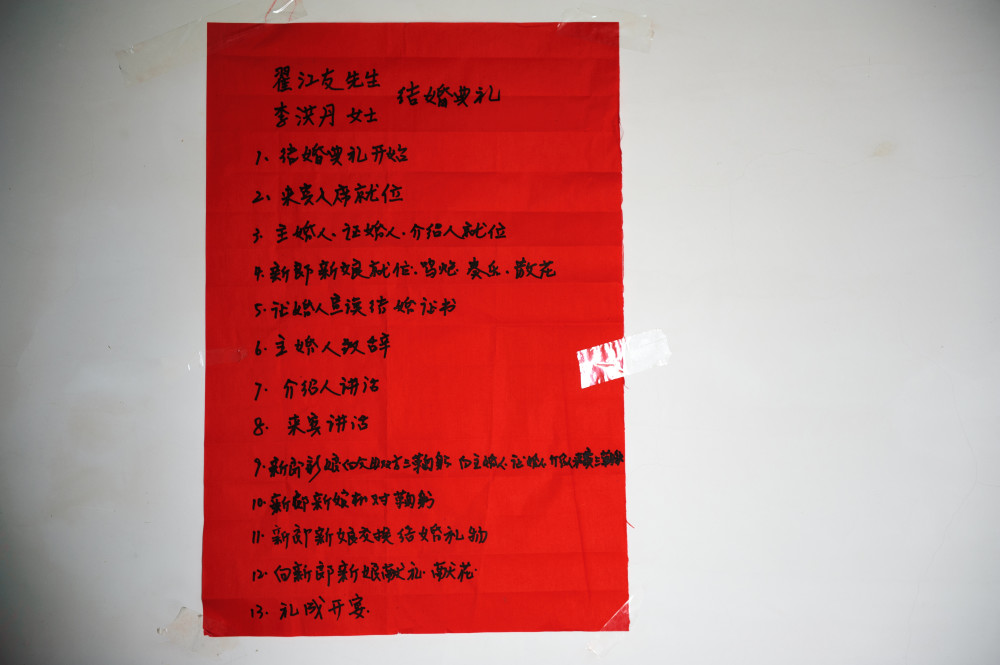 翟江友先生
李洪丹女士
结婚典礼
1、结婚典礼开始
2、来宾入席就位
3、主婚人、证婚人、介绍人就位
4、新郎新娘就位、鸣炮、奏乐、散花
5、证婚人宣读结婚证书
6、主婚人致辞
7、介绍人讲话
8、来宾讲话
9、新郎新娘向父母双方三鞠躬 向主婚人、证婚人、介绍人来宾三鞠躬
10、新郎新娘相对鞠躬
11、新郎新娘交换结婚礼物
12、向新郎新娘献礼、献花
13、礼成开宴